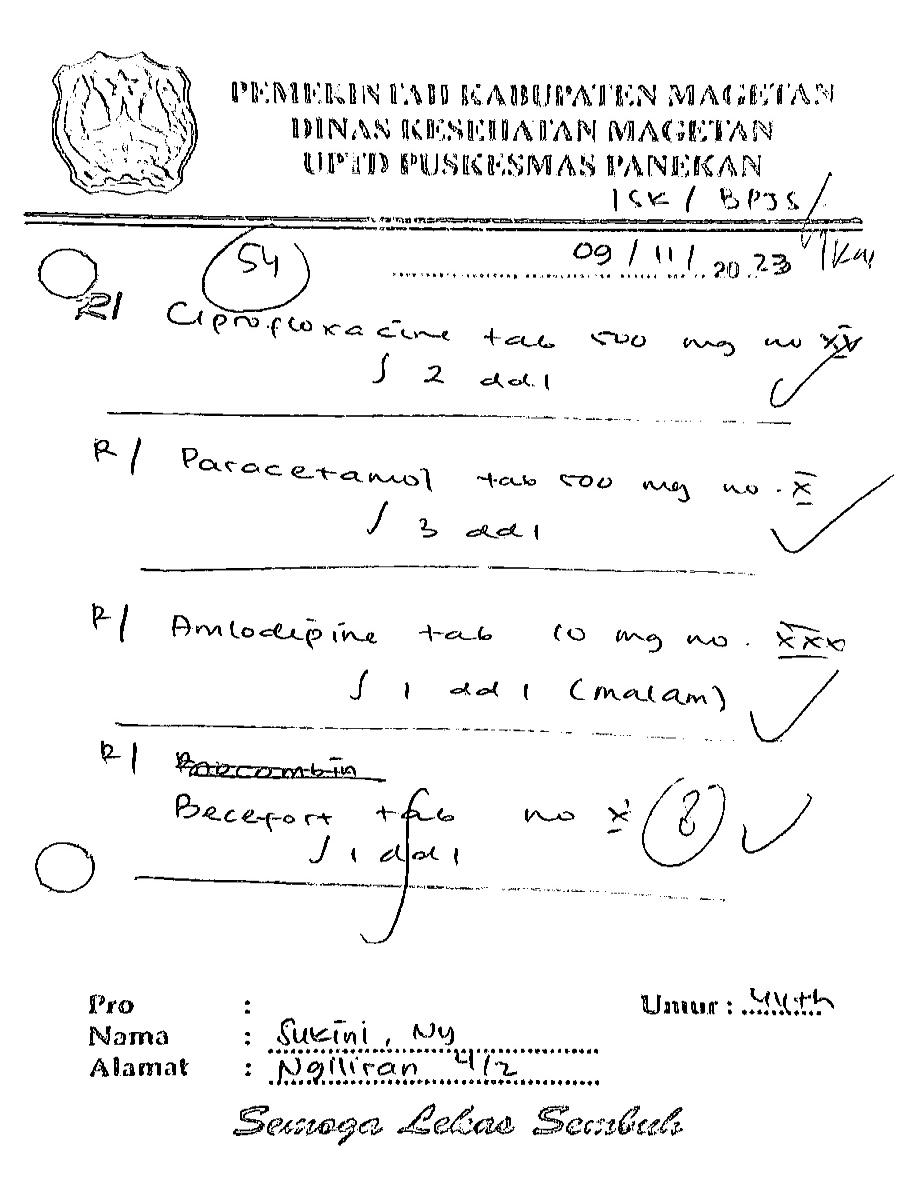 PEMERINTAH KABUPATEN MAGETAN
DINAS KESEHATAN MAGETAN
UPTD PUSKESMAS PANEKAN
ISK / BPJS
54
09 / 11 / 2023
R/ Ciprofloxacine tab 500 mg no XV
∫ 2 dd 1
R/ Paracetamol tab 500 mg no. X
∫ 3 dd 1
R/ Amlodipine tab 10 mg no. XXX
∫ 1 dd 1 (malam)
R/
Becefort tab no X
∫ 1 dd 1
Pro :
Umur : 44 th
Nama : Sukini, Ny
Alamat : Ngiliran 4/2
Semoga Lekas Sembuh